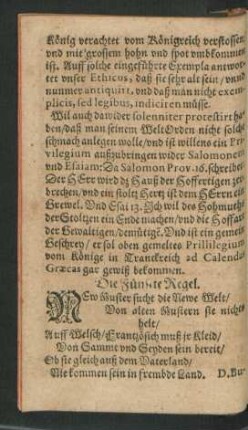 König verachtet vom Königreich verstossen
vnd mit grossem hohn vnd spot vmbkommen
ist. Auff solche eingeführte Exempla antwor-
tet vnser Ethicus, daß sie sehr alt sein / vnn
nunmer antiquirt, vnd daß man nicht exem-
plicis, sed legibus, indiciren müsse.
Wil auch da wider solenniter protestirt ha-
ben / daß man seinem Welt Orden nicht solche
schmach anlegen wolle / vnd ist willens ein Pri-
vilegium außzubringen wider Salomonem
vnd Esaiam: Da Salomon Prov. 16. schreibet
Der HErr wird dz Hauß der Hoffertigen zer-
brechen / vnd ein stoltz Hertz ist dem HErrn ein
Grewel. Vnd Esai 13. Ich wil des Hohmuths
der Stoltzen ein Ende machen / vnd die Hoffart
der Gewaltigen / demütigē. Vnd ist ein gemein
Geschrey / er sol oben gemeltes Prillilegium
vom Könige in Franckreich ad Calendas
Græcas gar gewiß bekommen.
Die Fünffte Regel.
New Muster suche die Newe Welt /
Von alten Mustern sie nichts
helt /
Auff Welsch / Frantzösisch muß jr Kleid /
Von Sammt vnd Seyden sein bereit /
Ob sie gleich auß dem Vaterland /
Nie kommen sein in frembde Land.
D. Bu-